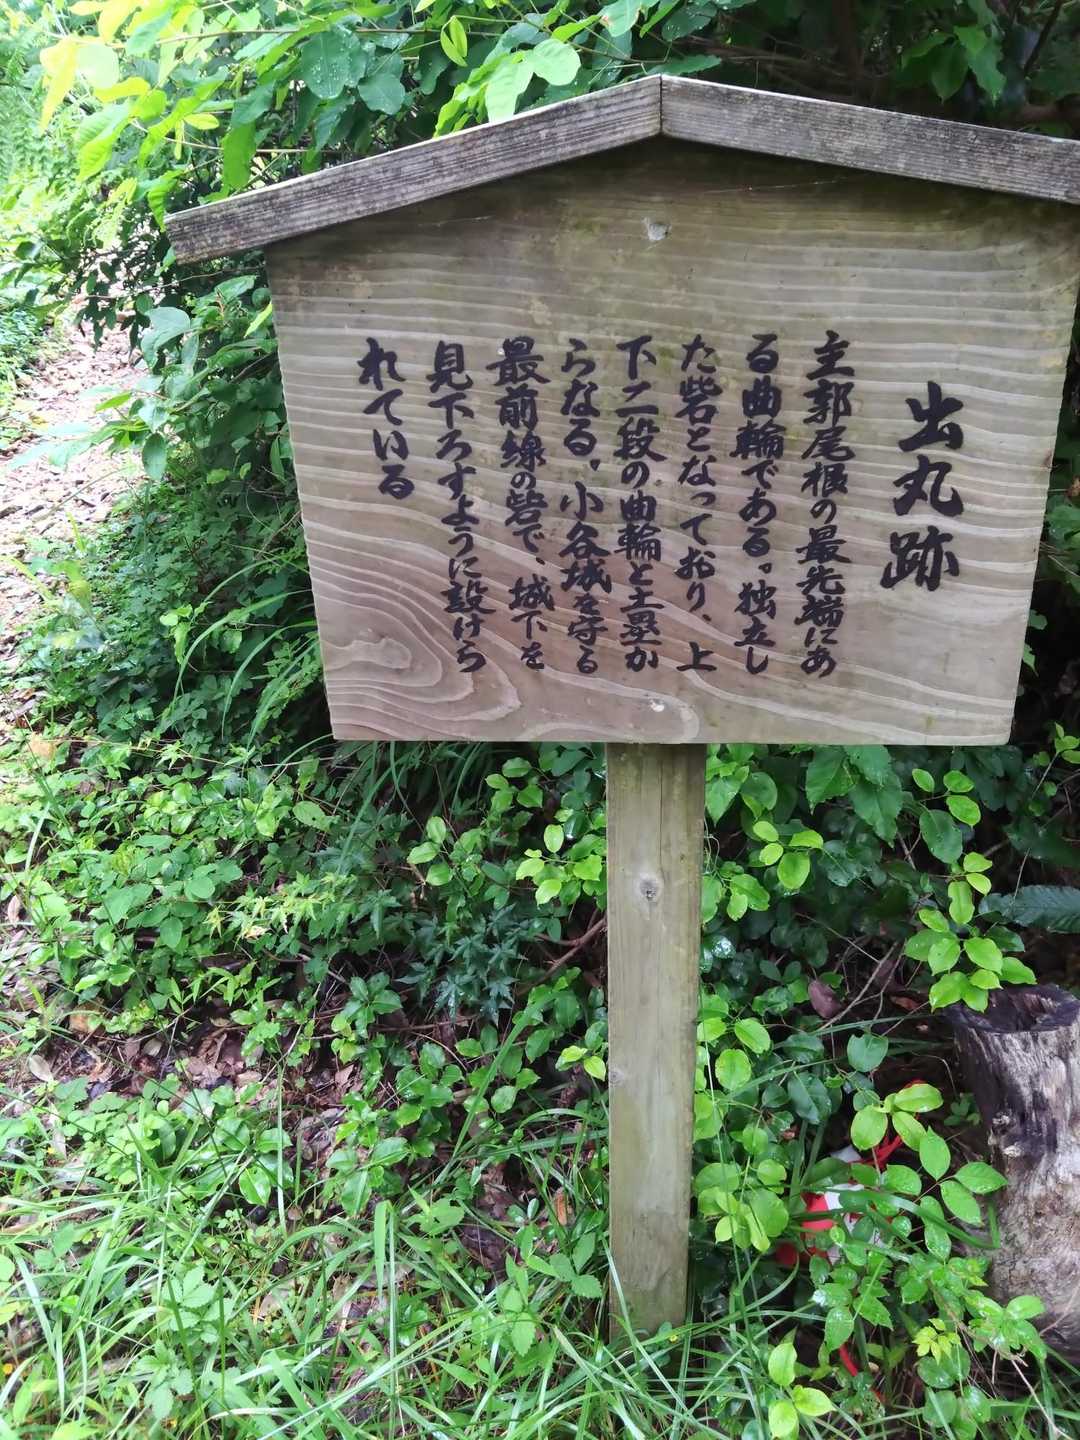 出丸跡
主郭尾根の最先端にあ
る曲輪である。独立し
た砦となっており、上
下二段の曲輪と土塁か
らなる。小谷城を守る
最前線の砦で、城下を
見下ろすように設けら
れている